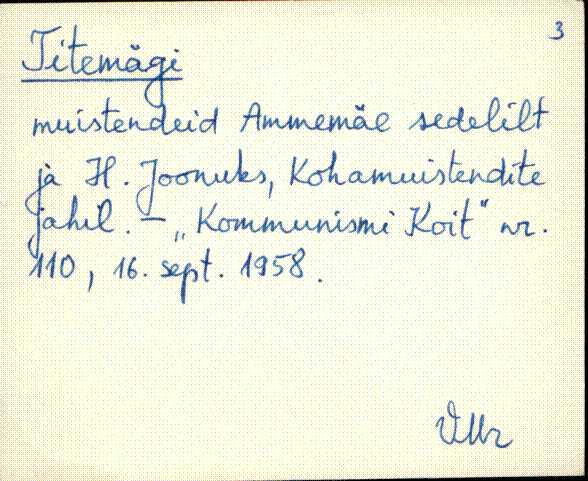 3
Titemägi
muistendeid Ammemäe sedelilt
ja H. Joonuks, Kohamuistendite
jahil. – „Kommunismi Koit" nr.
110, 16. sept. 1958.